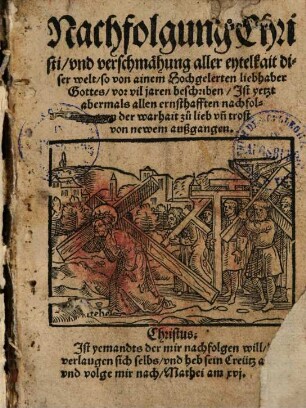 Nachfolgung Chri
sti/vnd verschmähung aller eytelkait di-
ser welt/so von ainem Hochgelerten liebhaber
Gottes/vor vil jaren beschriben/Ist yetzt
abermals allen ernsthafften nachfol-
der warhait zů lieb vñ trost
von newem außgangen.
Christus:
Ist yemandts der mir nachfolgen will/
verlaugen sich selbs/vnd heb sein Creütz a
vnd volge mir nach/Mathei am xvj.